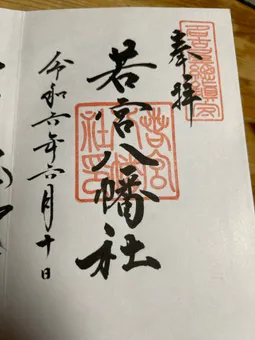 奉拝
若宮八幡社
令和六年六月十日